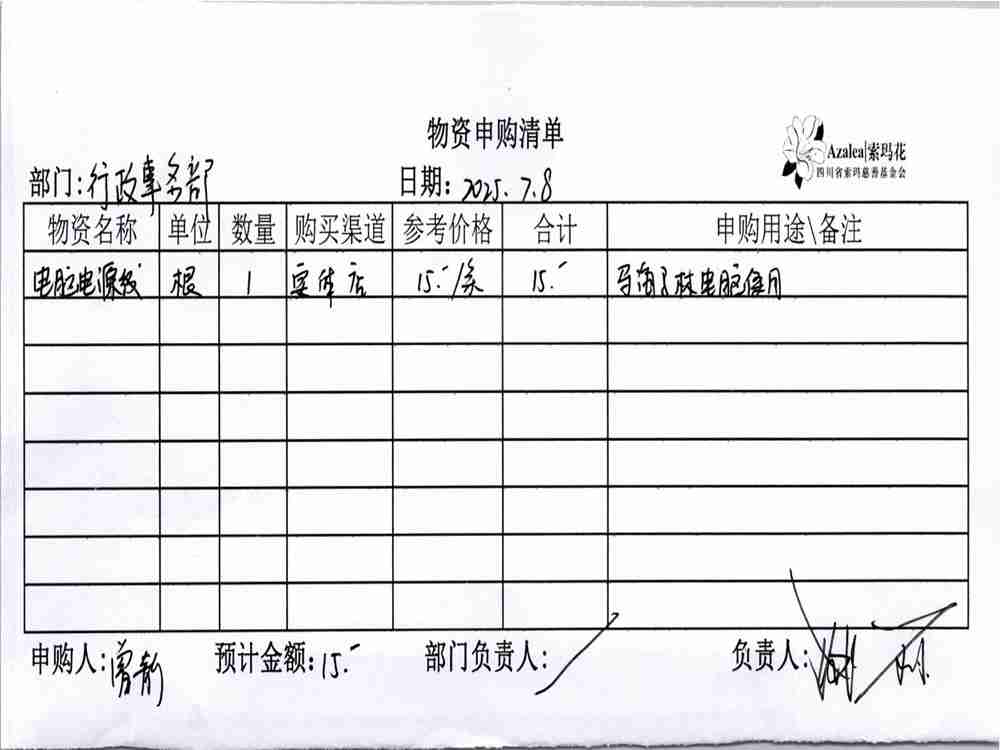 物资申购清单
Azalea|索玛花
四川省索玛慈善基金会
部门:行政事务部 日期:2025.7.8
物资名称 单位 数量 购买渠道 参考价格 合计 申购用途\备注
电脑电源线 根 1 实体店 15.-/条 15.- 马海子林电脑使用
申购人:曾静 预计金额:15.- 部门负责人: 负责人: